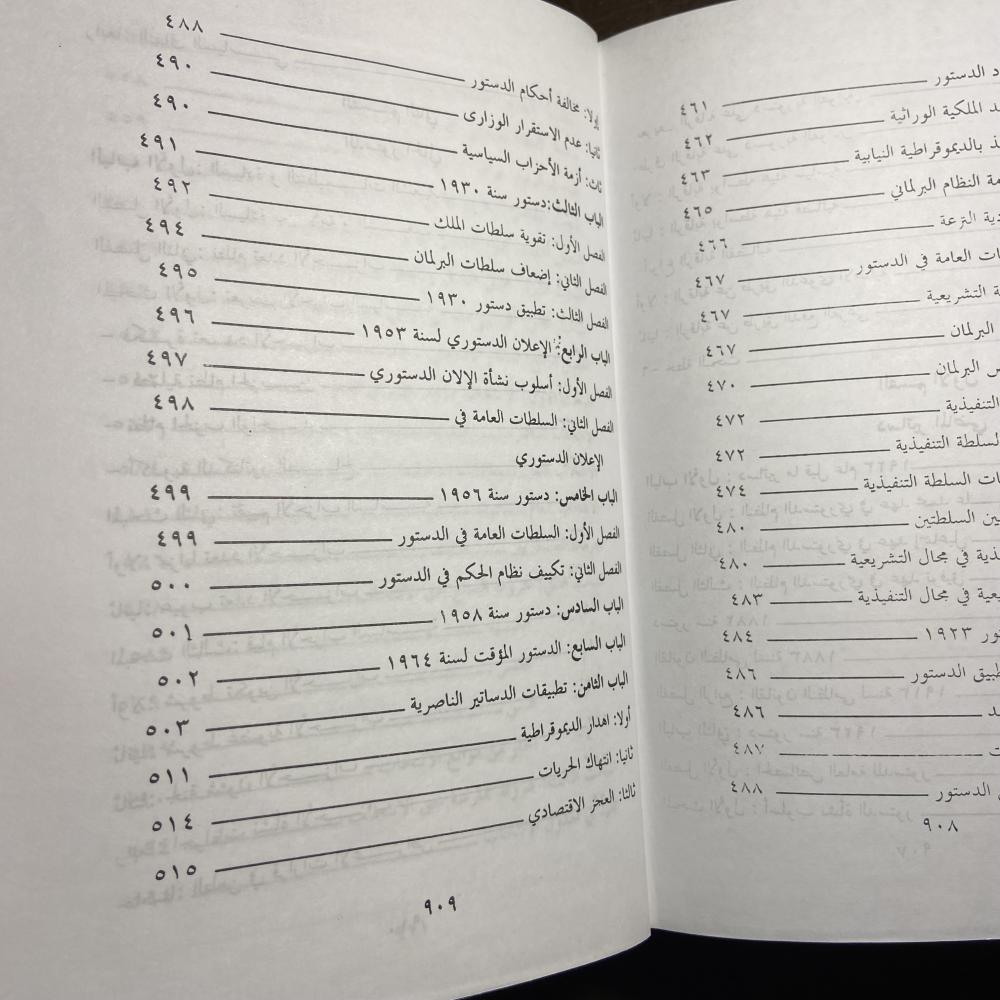 د الدستور ٤٦١
د الملكية الوراثية ٤٦٢
ذ بالديموقراطية النيابية ٤٦٣
مة النظام البرلماني ٤٦٥
دية النزعة ٤٦٦
ات العامة في الدستور ٤٦٧
ة التشريعية ٤٦٧
البرلمان ٤٦٧
س البرلمان ٤٧٠
التنفيذية ٤٧٢
السلطة التنفيذية ٤٧٢
ات السلطة التنفيذية ٤٧٤
ين السلطتين ٤٨٠
ذية في مجال التشريعية ٤٨٠
يعية في مجال التنفيذية ٤٨٣
ور ١٩٢٣ ٤٨٤
طبيق الدستور ٤٨٦
د ٤٨٦
ت ٤٨٧
الدستور ٤٨٨
٩٠٨
اولا: مخالفة أحكام الدستور ٤٨٨
ثانيا: عدم الاستقرار الوزارى ٤٩٠
ثالث: أزمة الأحزاب السياسية ٤٩٠
الباب الثالث: دستور سنة ١٩٣٠ ٤٩١
الفصل الأول: تقوية سلطات الملك ٤٩٢
الفصل الثاني: إضعاف سلطات البرلمان ٤٩٤
الفصل الثالث: تطبيق دستور ١٩٣٠ ٤٩٥
الباب الرابع: الإعلان الدستوري لسنة ١٩٥٣ ٤٩٦
الفصل الأول: أسلوب نشأة الإلان الدستوري ٤٩٧
الفصل الثاني: السلطات العامة في ٤٩٨
الإعلان الدستوري
الباب الخامس: دستور سنة ١٩٥٦ ٤٩٩
الفصل الأول: السلطات العامة في الدستور ٤٩٩
الفصل الثاني: تكييف نظام الحكم في الدستور ٥٠٠
الباب السادس: دستور سنة ١٩٥٨ ٥٠١
الباب السابع: الدستور المؤقت لسنة ١٩٦٤ ٥٠٢
الباب الثامن: تطبيقات الدساتير الناصرية ٥٠٣
أولا: اهدار الديموقراطية ٥١١
ثانيا: انتهاك الحريات ٥١٤
ثالثا: العجز الاقتصادي ٥١٥
٩٠٩